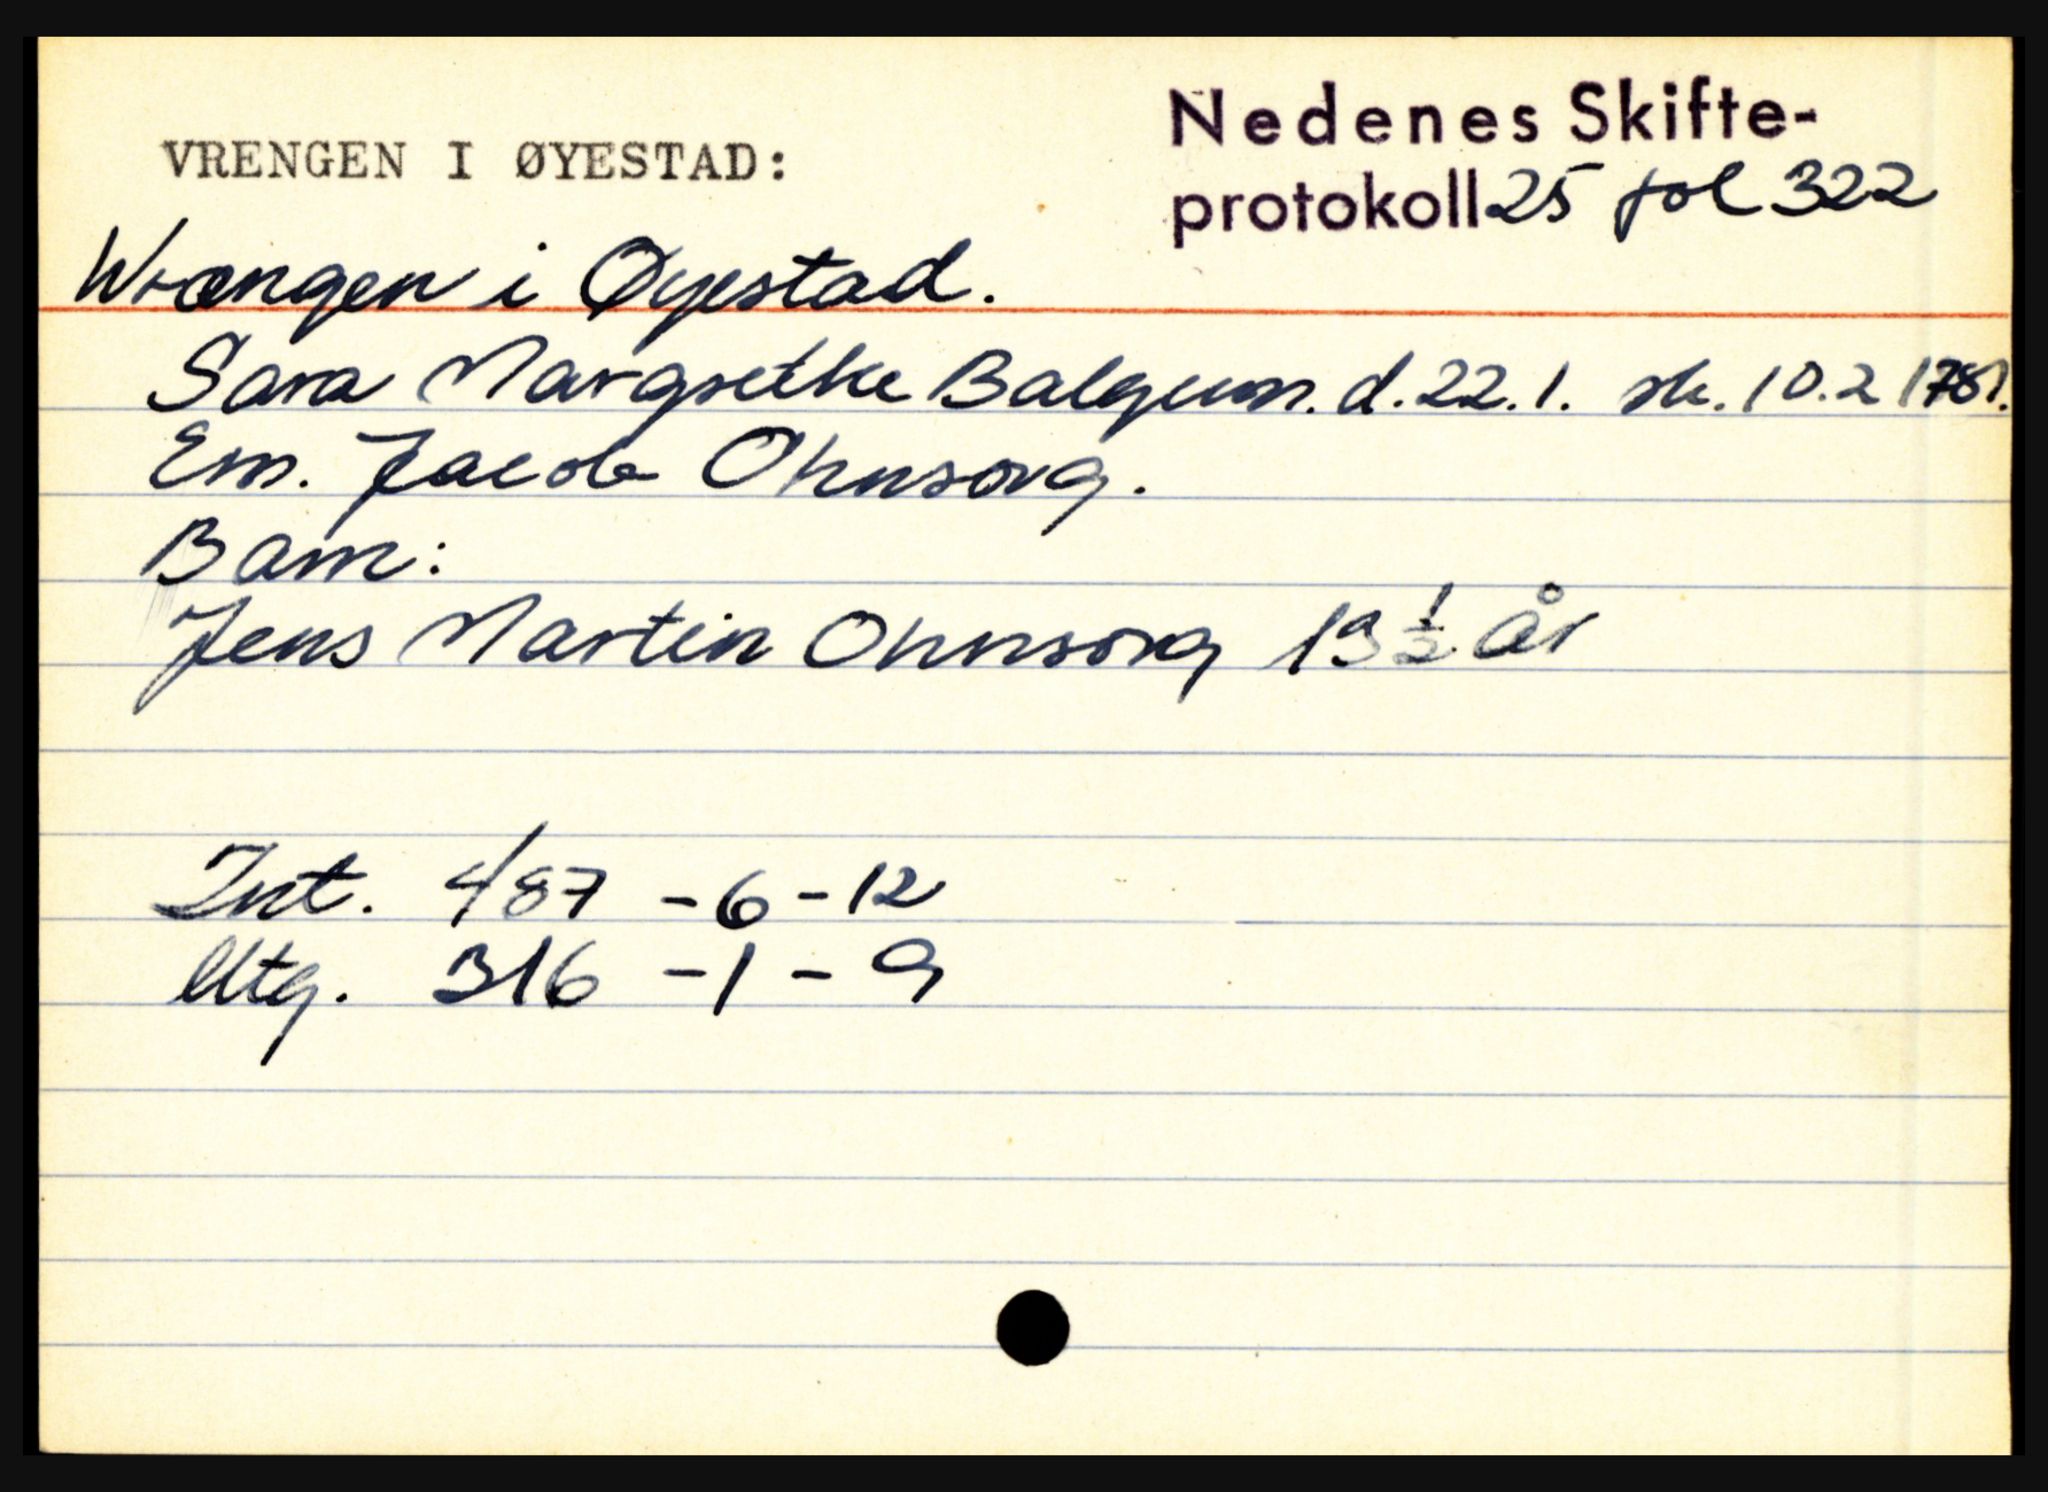 VRENGEN I ØYESTAD:
Nedenes Skifte-
protokoll 25 fol 322
Wrængen i Øyestad.
Sara Margrethe Balgeum. d. 22.1. sk. 10.2 1781.
Em. Jacob Ohnsorg.
Barn:
Jens Martin Ohnnsorg 13 ½ år
Int. 487 - 6 - 12
Utg. 316 - 1 - 9